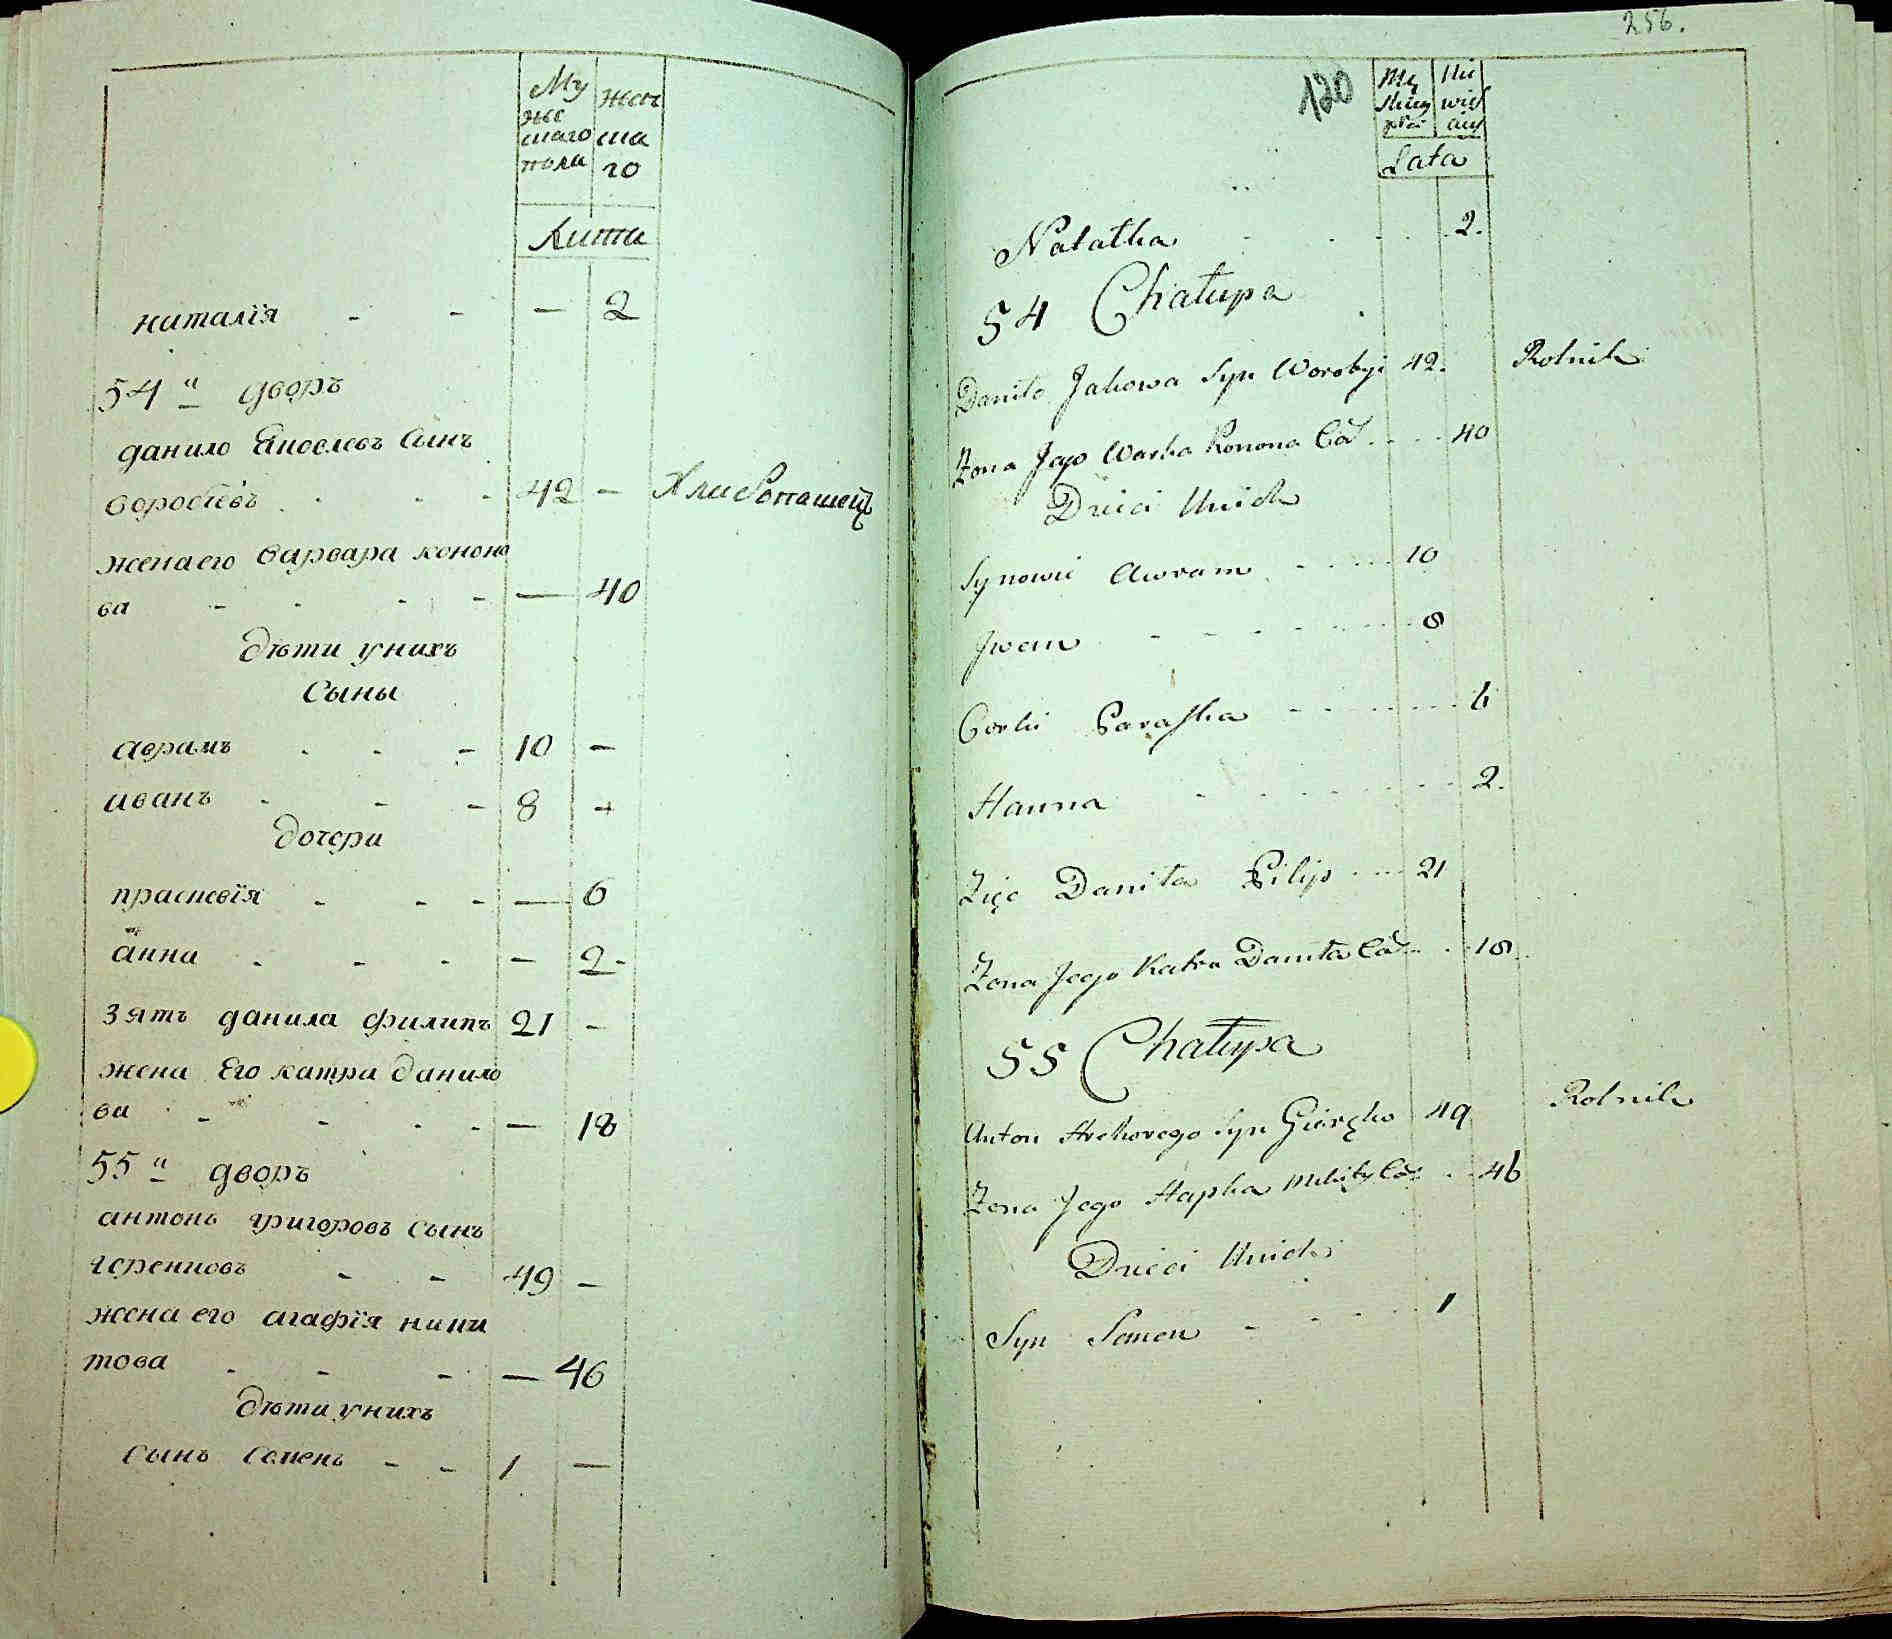 Му
же
скаго
пола
жен
ска
го
Лита
наталїя - - - 2
54й дворъ
данило Яковлевъ сынъ
воробїевъ - 42 - Хлибопашецъ
жена его варвара кононо
ва - - - - - 40
дѣти у нихъ
Сыны
аврамъ - - - 10 -
иванъ - - - 8 -
дочери
праскевїя - - - - 6
анна - - - - 2-
зять данила филипъ 21 -
жена Его катра данило
ва - - - - - 18
55й дворъ
антонъ григоровъ сынъ
- - 49 -
жена его агафїя ники
това - - - - 46
дѣти у нихъ
сынъ Семенъ - - 1 -
256.
120
Lata
Natalka 2.
54 Chałupa
Daniło Jakowa Syn Worobyi 42. Rolnik
Żona Jego Warka Konona Cór 40
Dzieci Unich
Synowie Awram 10
Iwan 8
Corki Paraska 6
Hanna 2.
Zięć Daniła Pilip 21
Żona Jego Katra Daniła Cór 18
55 Chałupa
Anton Hrehorego Syn 49 Rolnik
Żona Jego Hapka Mikity Cór 46
Dzieci Unich
Syn Semen 1